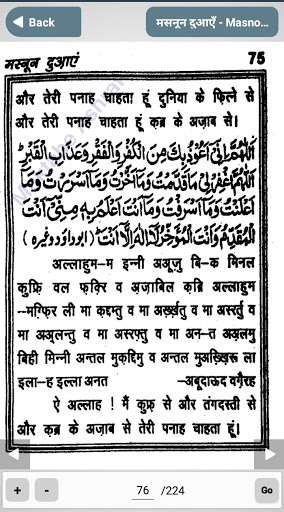 Back
मसनून दुआएँ - Masno...
मसनून दुआएं 75
और तेरी पनाह चाहता हूं दुनिया के फ़ित्ने से
और तेरी पनाह चाहता हूं क़ब्र के अज़ाब से।
اَللّٰهُمَّ اِنِّیْ اَعُوْذُ بِكَ مِنَ الْكُفْرِ وَالْفَقْرِ وَعَذَابِ الْقَبْرِ
اَللّٰهُمَّ اغْفِرْ لِیْ مَا قَدَّمْتُ وَمَا اَخَّرْتُ وَمَا اَسْرَرْتُ وَمَا
اَعْلَنْتُ وَمَا اَسْرَفْتُ وَمَا اَنْتَ اَعْلَمُ بِهٖ مِنِّیْ اَنْتَ
الْمُقَدِّمُ وَاَنْتَ الْمُؤَخِّرُ لَا اِلٰهَ اِلَّا اَنْتَ (ابوداؤد وغیرہ)
अल्लाहुम-म इन्नी अअूज़ु बि-क मिनल
कुफ़्रि वल फक़्रि व अज़ाबिल क़ब्रि अल्लाहुम
--मग्फ़िर ली मा क़द्दम्तु व मा अख़्ख़र्तु व मा अस्रर्तु व
मा अअ्लन्तु व मा अस्रफ़्तु व मा अन-त अअ्लमु
बिही मिन्नी अन्तल मुक़द्दिमु व अन्तल मुअख़्ख़िरु ला
इला-ह इल्ला अनत -अबूदाऊद वगै़रह
ऐ अल्लाह ! मैं कुफ़्र से और तंगदस्ती से
और क़ब्र के अज़ाब से तेरी पनाह चाहता हूं।
+ - 76 /224 Go